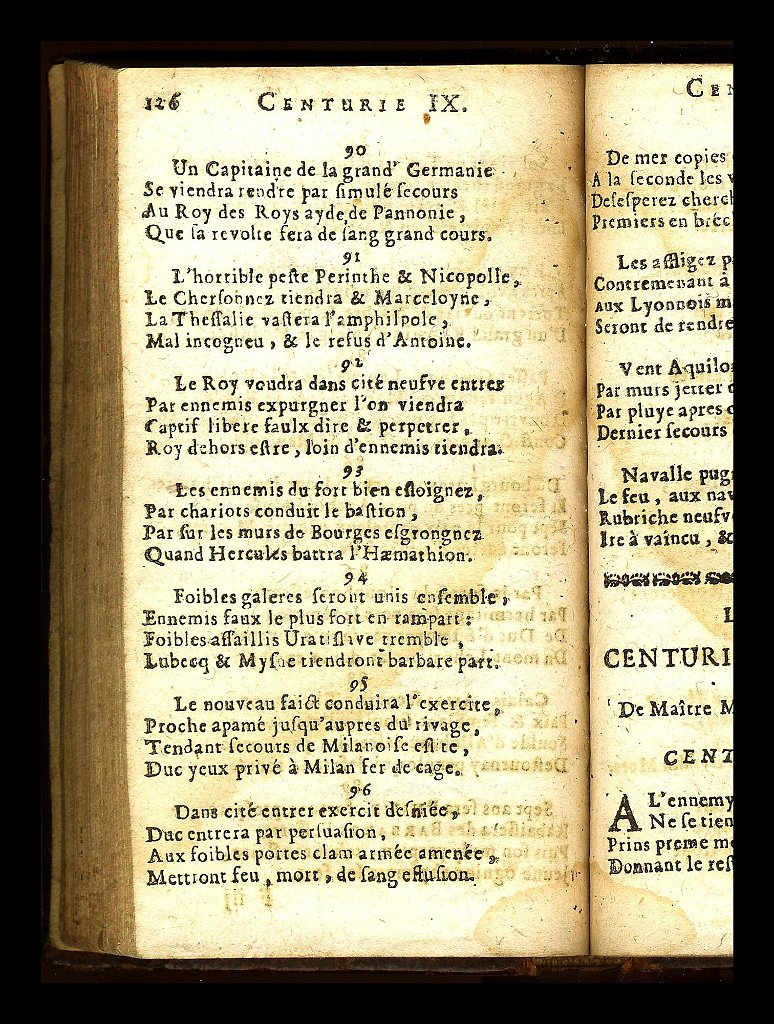 126 CENTURIE IX.
90
Un Capitaine de la grand' Germanie
Se viendra rendre par ſimulé ſecours
Au Roy des Roys ayde de Pannonie,
Que ſa revolte ſera de ſang grand cours.
91
L'horrible peſte Perinthe & Nicopolle,
Le Cherſonnez tiendra & Marceloyne,
La Theſſalie vaſtera l'amphilpole,
Mal incogneu, & le refus d'Antoine.
92
Le Roy voudra dans cité neufve entrer
Par ennemis expurgner l'on viendra
Captif libere faulx dire & perpetrer,
Roy dehors eſtre, loin d'ennemis tiendra.
93
Les ennemis du fort bien eſloignez,
Par chariots conduit le baſtion,
Par ſur les murs de Bourges eſgrongnez
Quand Hercules battra l'Hæmathion.
94
Foibles galeres ſeront unis enſemble,
Ennemis faux le plus fort en rampart:
Foibles aſſaillis Uratiſlave tremble,
Lubecq & Myſne tiendront barbare part.
95
Le nouveau faict conduira l'exercite,
Proche apamé juſqu'aupres du rivage,
Tendant ſecours de Milanoiſe eſlite,
Duc yeux privé à Milan fer de cage.
96
Dans cité entrer exercit deſniée,
Duc entrera par perſuaſion,
Aux foibles portes clam armée amenée,
Mettront feu, mort, de ſang effuſion.
CEN
De mer copies
A la ſeconde les
Deſeſperez cherch
Premiers en brec
Les affligez p
Contremenant à
Aux Lyonnois m
Seront de rendre
Vent Aquilo
Par murs jetter
Par pluye apres
Dernier ſecours
Navalle pug
Le feu, aux nav
Rubriche neufv
Ire à vaincu, &
L
CENTURI
De Maître M
CENT
A L'ennemy
Ne ſe tien
Prins preme m
Donnant le reſ